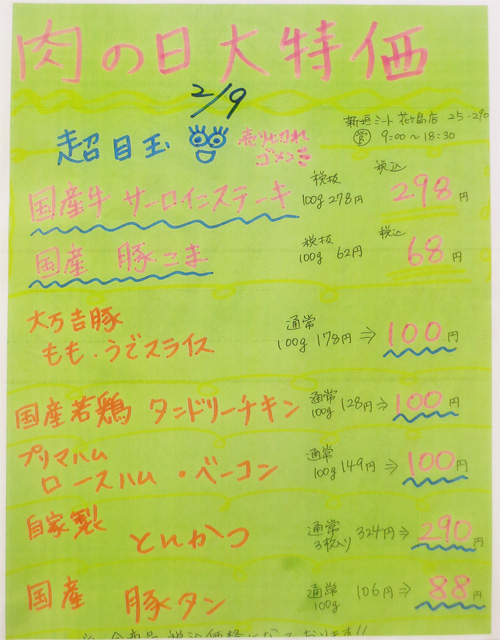 肉の日大特価
2/9
新垣ミート 花ケ島店 25-290
営 9:00〜18:30
超目玉 売り切れゴメン
国産牛 サーロインステーキ 税抜 100g 278円 税込 298円
国産 豚こま 税抜 100g 62円 税込 68円
大万吉豚
もも・うでスライス 通常 100g 178円⇒100円
国産若鶏 タンドリーチキン 通常 100g 128円⇒100円
プリマハム
ロースハム・ベーコン 通常 100g 149円⇒100円
自家製 とんかつ 通常 3枚入り 324円⇒290円
国産 豚タン 通常 100g 106円⇒88円